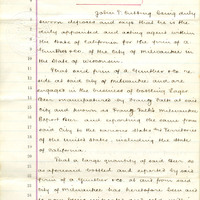 John T. Cutting being duly
sworn deposes and says that he is the
duly appointed and acting agent within
the State of California for the firm of
Gunther & Co. of the City of Milwaukee in
the State of Wisconsin.
That said firm of Gunther & Co. re-
side at said City of Milwaukee and are
engaged in the business of bottling Lager
Beer manufactured by Franz Falk at said
City and known as Franz Falk's Milwaukee
Export Beer and exporting the same from
said City to the various States & Territories
of the United States, including the State
of California.
That a large quantity of said Beer
so bottled and exported by said
firm of Gunther & Co. at and from said
City of Milwaukee has heretofore been and
is now being imported and sold